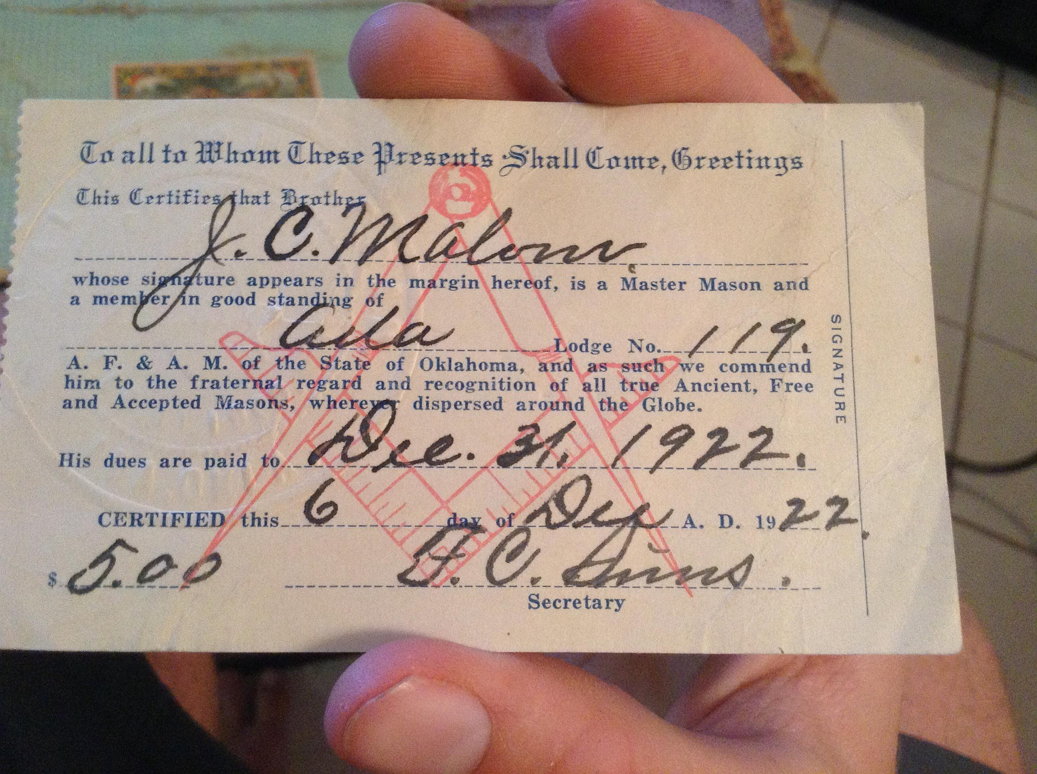 To all to Whom These Presents Shall Come, Greetings
This Certifies that Brother
J. C. Malone
whose signature appears in the margin hereof, is a Master Mason and
a member in good standing of
Ada Lodge No. 119.
A. F. & A. M. of the State of Oklahoma, and as such we commend
him to the fraternal regard and recognition of all true Ancient, Free
and Accepted Masons, wherever dispersed around the Globe.
His dues are paid to Dec. 31. 1922.
CERTIFIED this 6 day of Dec A. D. 1922.
$ 5.00 F. C. Sims.
Secretary
SIGNATURE